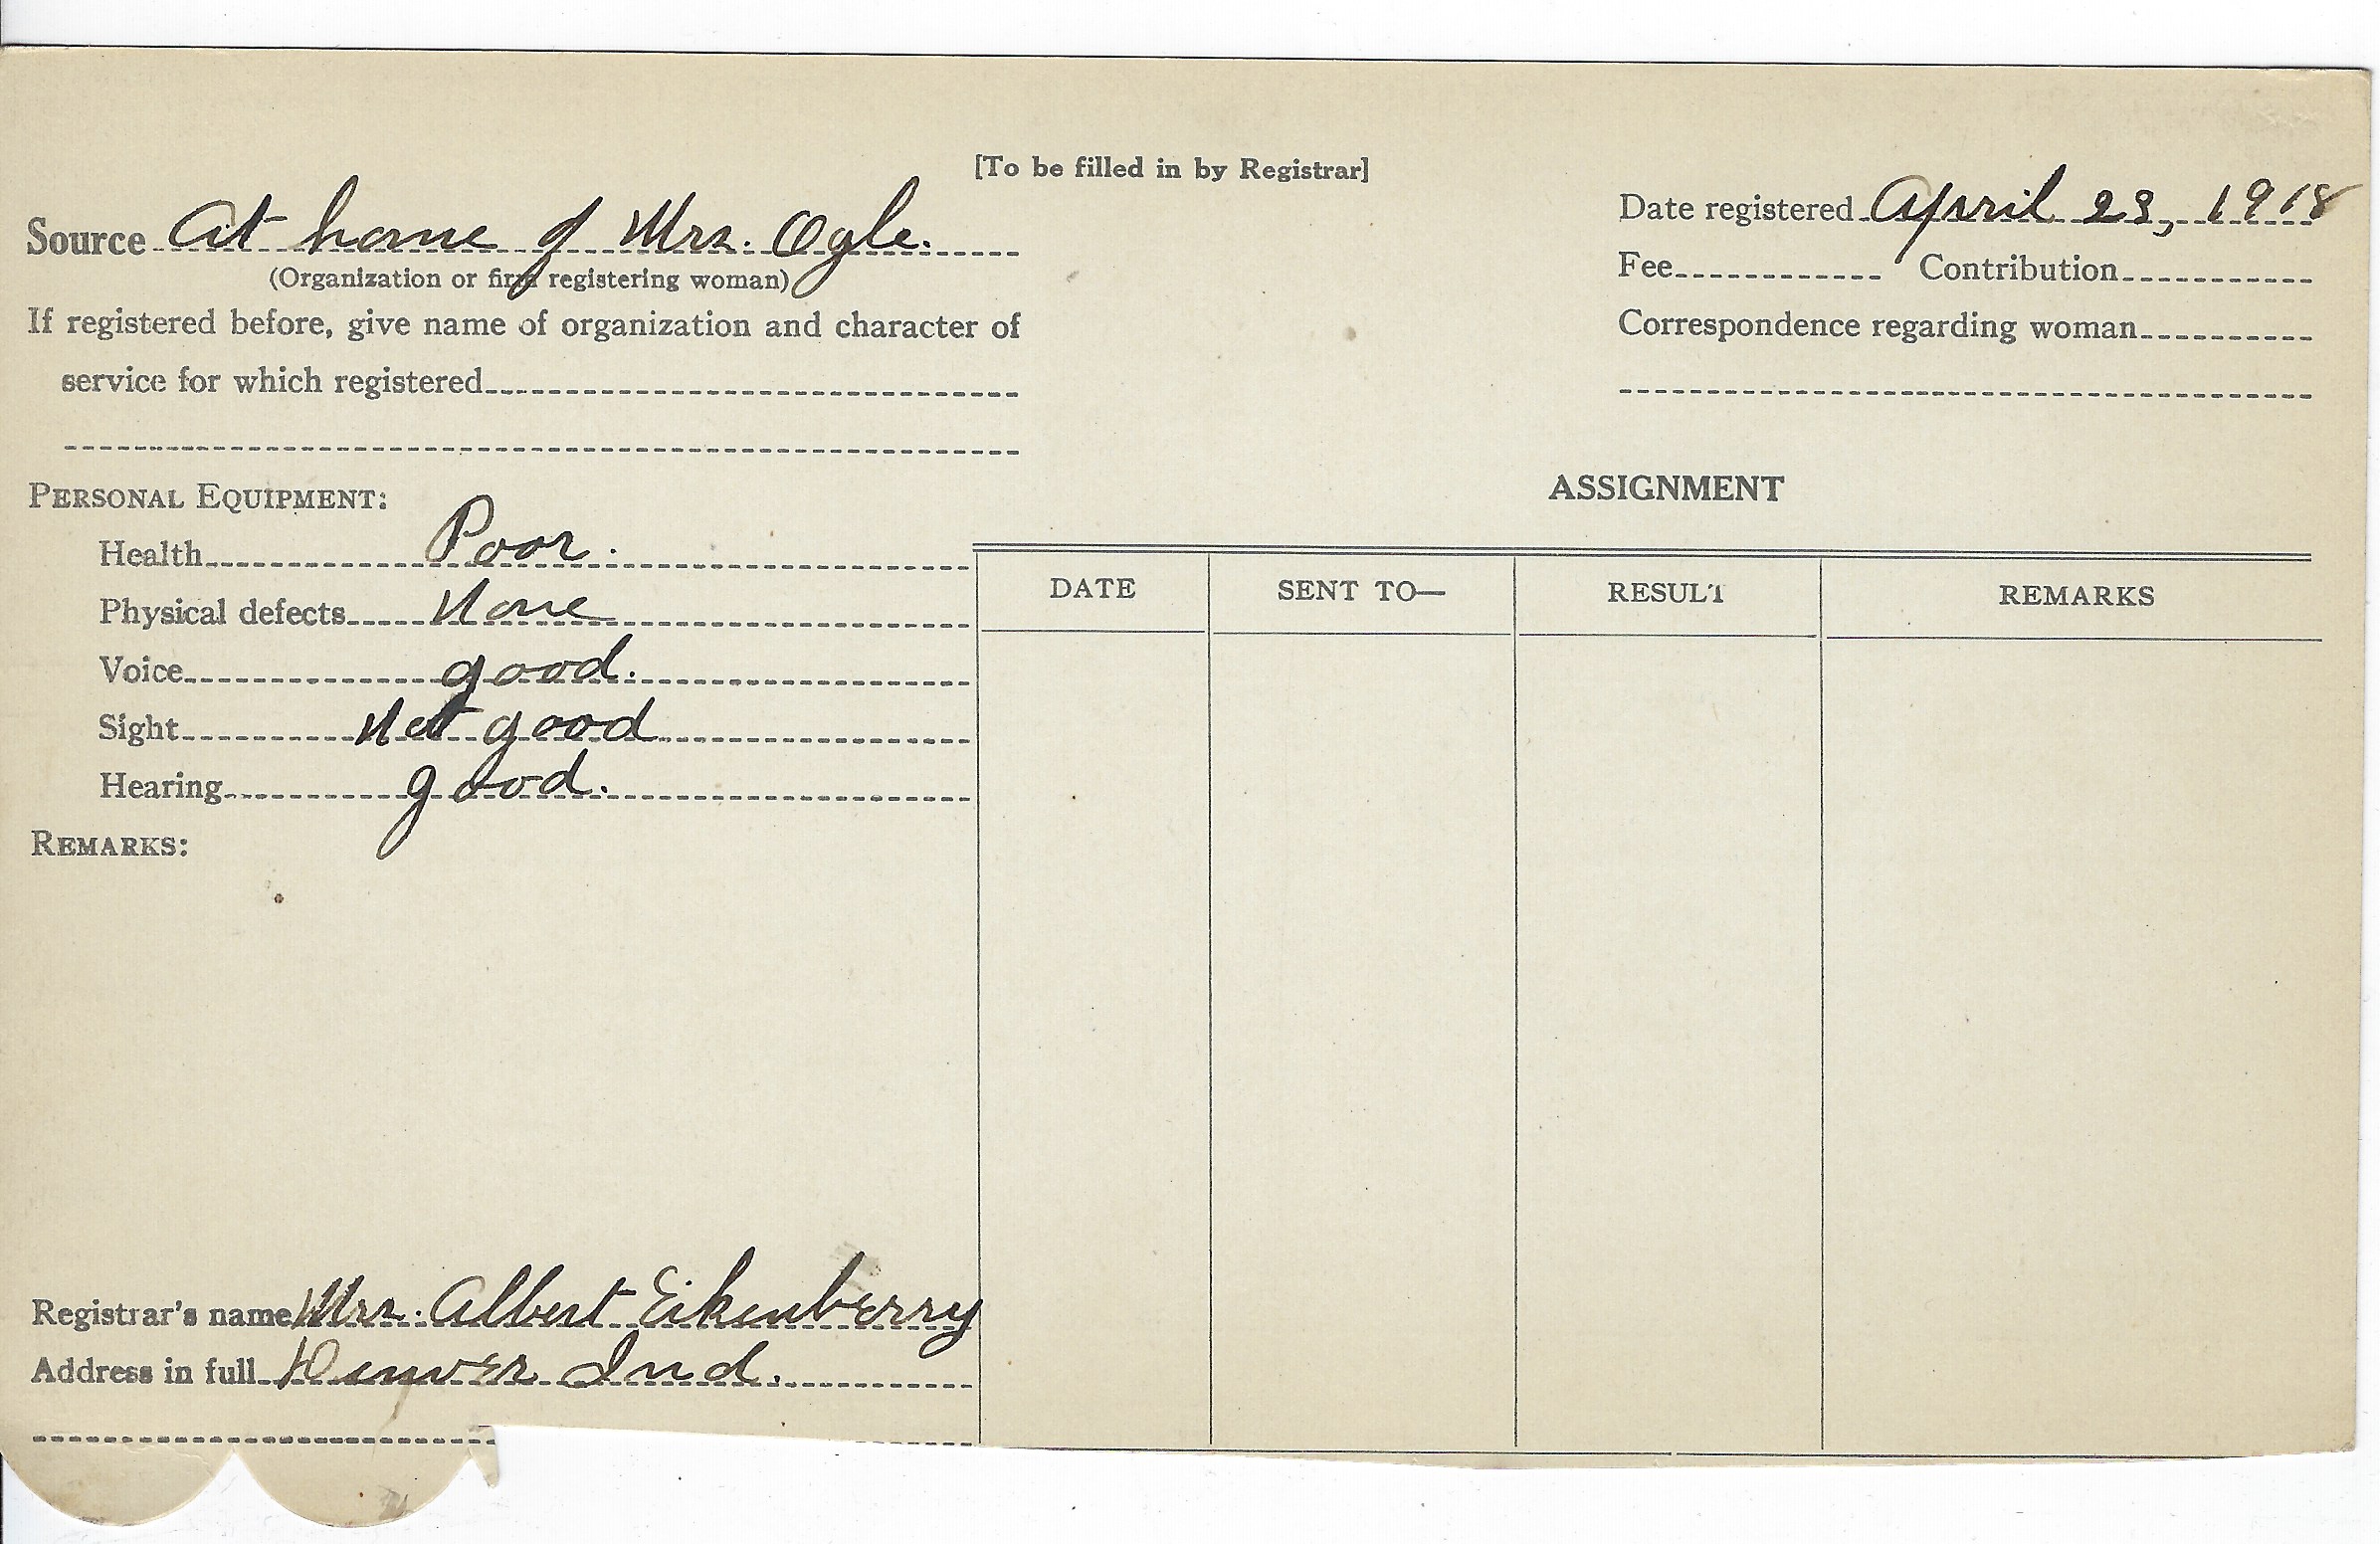 [To be filled in by Registrar]
Source At home of Mrs. Ogle.
(Organization or firm registering woman)
If registered before, give name of organization and character of
service for which registered
Date registered April 23, 1918
Fee Contribution
Correspondence regarding woman
PERSONAL EQUIPMENT:
Health Poor.
Physical defects None
Voice good.
Sight Not good
Hearing good.
REMARKS:
ASSIGNMENT
DATE SENT TO— RESULT REMARKS
Registrar's name Mrs. Albert Eikenberry
Address in full Denver Ind.